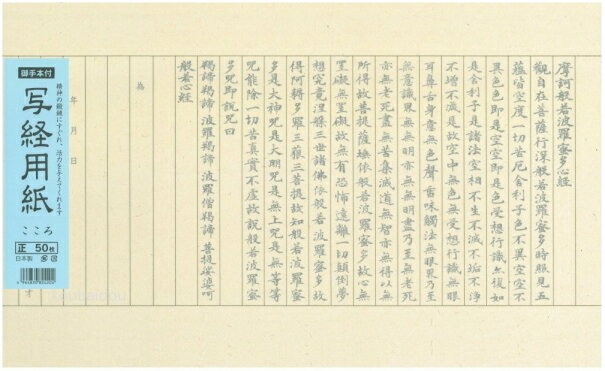 摩訶般若波羅蜜多心経
觀自在菩薩行深般若波羅蜜多時照見五
蘊皆空度一切苦厄舍利子色不異空空不
異色色即是空空即是色受想行識亦復如
是舍利子是諸法空相不生不滅不垢不淨
不增不減是故空中無色無受想行識無眼
耳鼻舌身意無色聲香味觸法無眼界乃至
無意識界無無明亦無無明盡乃至無老死
亦無老死盡無苦集滅道無智亦無得以無
所得故菩提薩埵依般若波羅蜜多故心無
罣礙無罣礙故無有恐怖遠離一切顛倒夢
想究竟涅槃三世諸佛依般若波羅蜜多故
得阿耨多羅三藐三菩提故知般若波羅蜜
多是大神咒是大明咒是無上咒是無等等
咒能除一切苦真實不虚故說般若波羅蜜
多咒即說咒曰
羯諦羯諦 波羅羯諦 波羅僧羯諦 菩提娑婆訶
般若心経
為
年 月 日
御手本付
精神の鍛錬にすぐれ、活力を与えてくれます
写経用紙
こころ
正 50枚
日本製